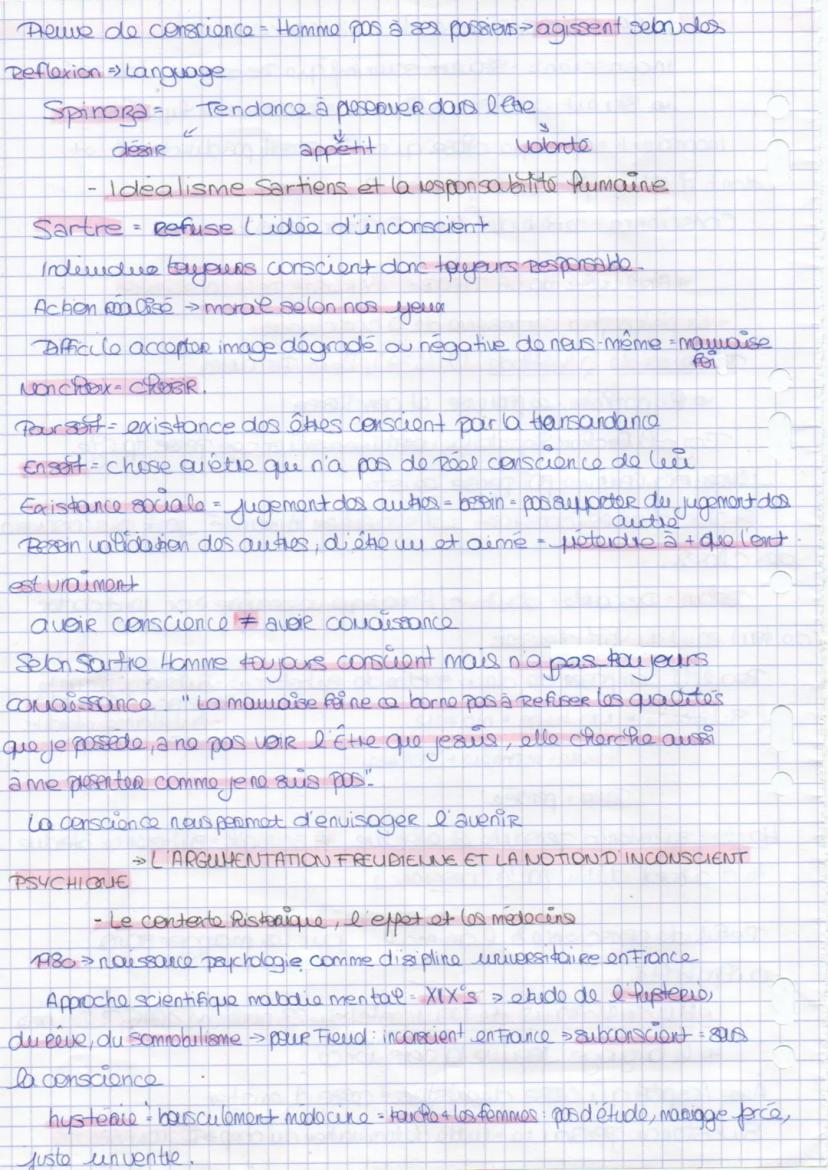 Preuve de conscience = Homme pas à ses passions → agissent selon des
Reflexion => Language
Spinoza = Tendance à preserver dans l'être
désir appétit volonté
- Idéalisme Sartiens et la responsabilité humaine
Sartre = refuse l'idée d'inconscient
Individue toujours conscient donc toujours responsable.
Action réalisé → moral selon nos yeux
Difficile accepter image dégradé ou négative de nous-même = mauvaise
foi
Non choix = CHOISIR.
Pour soit = existance des êtres conscient par la transandance
En soit = chose ou être que n'a pas de réel conscience de lui
Existance sociale = jugement des autres = besoin = pas supporter du jugement des
autre
Besoin validation des autres, d'être vu et aimé = prétendre à + que l'ont
est vraiment
avoir conscience ≠ avoir conaissance
Selon Sartre Homme toujours conscient mais n'a pas toujours
conaissance. "La mauvaise foi ne ce borne pas à refuser les qualités
que je possède, a ne pas voir l'Être que je suis, elle cherche aussi
à me présenter comme je ne suis pas".
La conscience nous permet d'envisager l'avenir
→ L'ARGUMENTATION FREUDIENNE ET LA NOTION D'INCONSCIENT
PSYCHIQUE
- Le contexte historique, l'effet et les médecins
1980 → naissance psychologie comme discipline universitaire en France
Approche scientifique maladie mental = XIX's → etude de l'hysterie,
du rêve, du somnobulisme → pour Freud : inconscient en France → subconscient = sous
la conscience
hysterie : bousculement médecine = touche + les femmes : pas d'étude, mariage forcé,
juste un ventre.